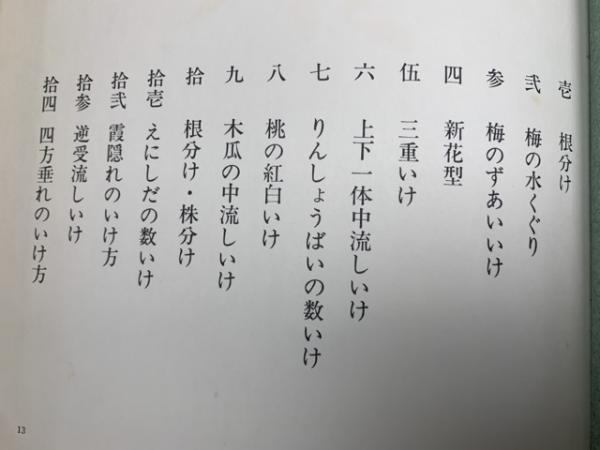 壱 根分け
弐 梅の水くぐり
参 梅のずあいいけ
四 新花型
伍 三重いけ
六 上下一体中流しいけ
七 りんしょうばいの数いけ
八 桃の紅白いけ
九 木瓜の中流しいけ
拾 根分け・株分け
拾壱 えにしだの数いけ
拾弐 霞隠れのいけ方
拾参 逆受流しいけ
拾四 四方垂れのいけ方
13